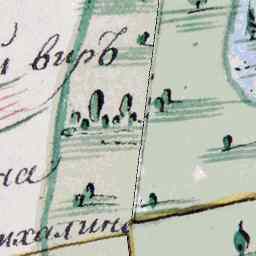 й виръ
на
ихалина